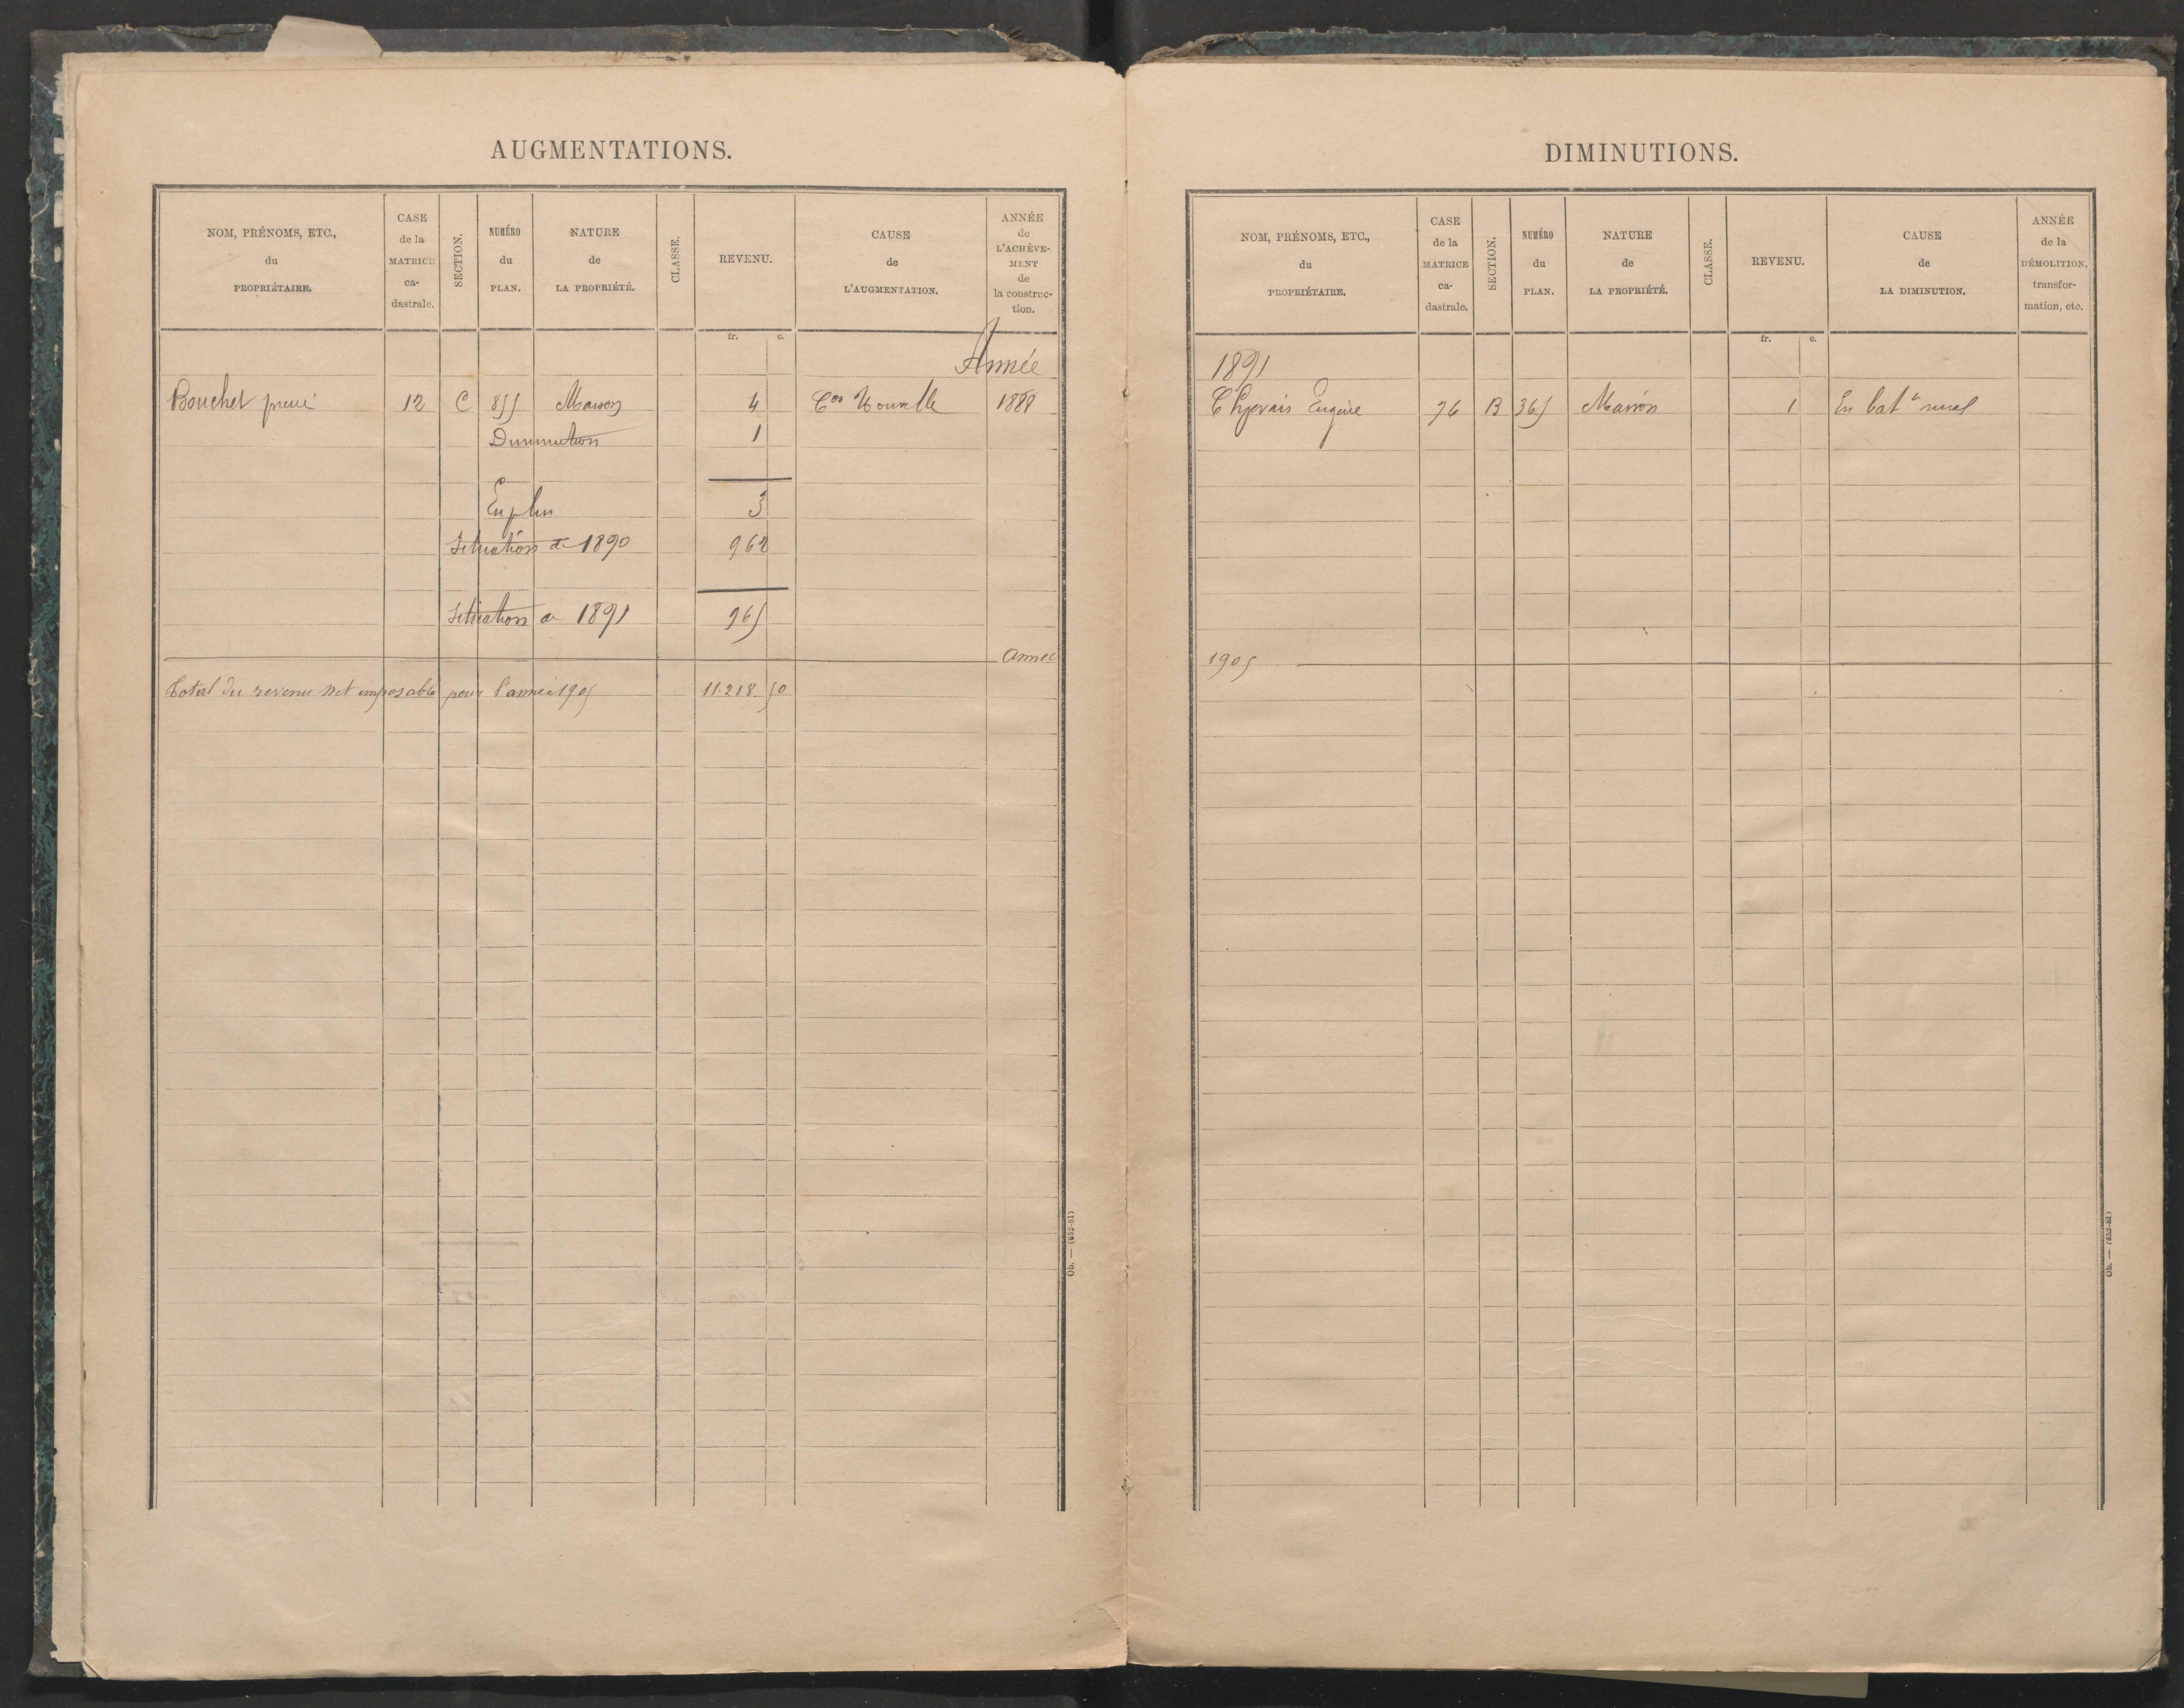 AUGMENTATIONS.
NOM, PRÉNOMS, ETC., du PROPRIÉTAIRE.
CASE de la MATRICE ca-dastrale.
SECTION.
NUMÉRO du PLAN.
NATURE de LA PROPRIÉTÉ.
CLASSE.
REVENU.
CAUSE de L'AUGMENTATION.
ANNÉE de L'ACHÈVE-MENT de la construc-tion.
fr. c.
Année
Bouchet 12 C 855 Maison 4 Con Nouvelle 1888
Diminution 1
En plus 3
Situation de 1890 962
Situation de 1891 965
Année
Total du revenu net imposable pour l'année 1905 11.218 50
Ob. — (652-81)
DIMINUTIONS.
NOM, PRÉNOMS, ETC., du PROPRIÉTAIRE.
CASE de la MATRICE ca-dastrale.
SECTION.
NUMÉRO du PLAN.
NATURE de LA PROPRIÉTÉ.
CLASSE.
REVENU.
CAUSE de LA DIMINUTION.
ANNÉE de la DÉMOLITION, transfor-mation, etc.
fr. c.
1891
Eugène 76 B 365 Maison 1 En bat t rural
1905
Ob. — (652-81)